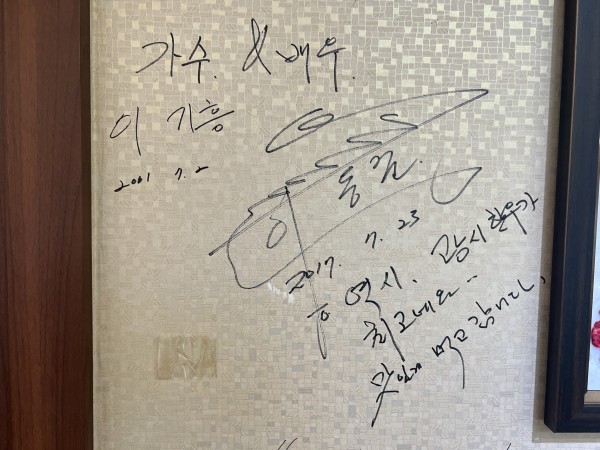 가수. & 배우.
이 기흥
2001 7. 2
동길.
2017. 7. 23
역시. 광시한우가
최고네요..
맛있게 먹고갑니다.